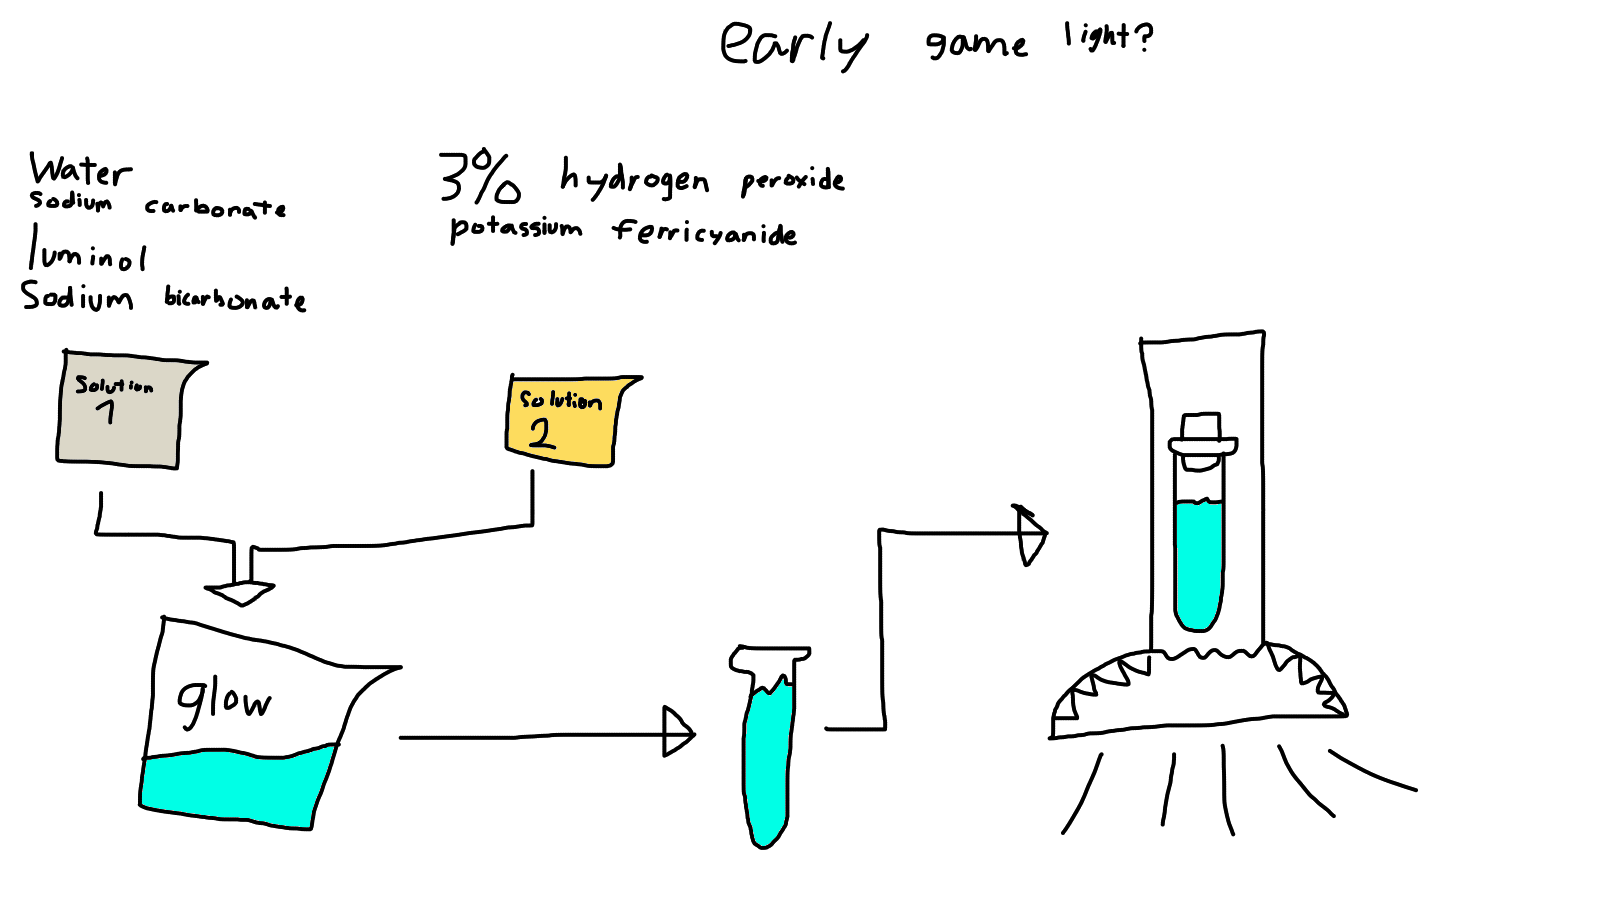 early game light?
Water
sodium carbonate
luminol
Sodium bicarbonate
3% hydrogen peroxide
potassium ferricyanide
Solution
1
Solution
2
glow